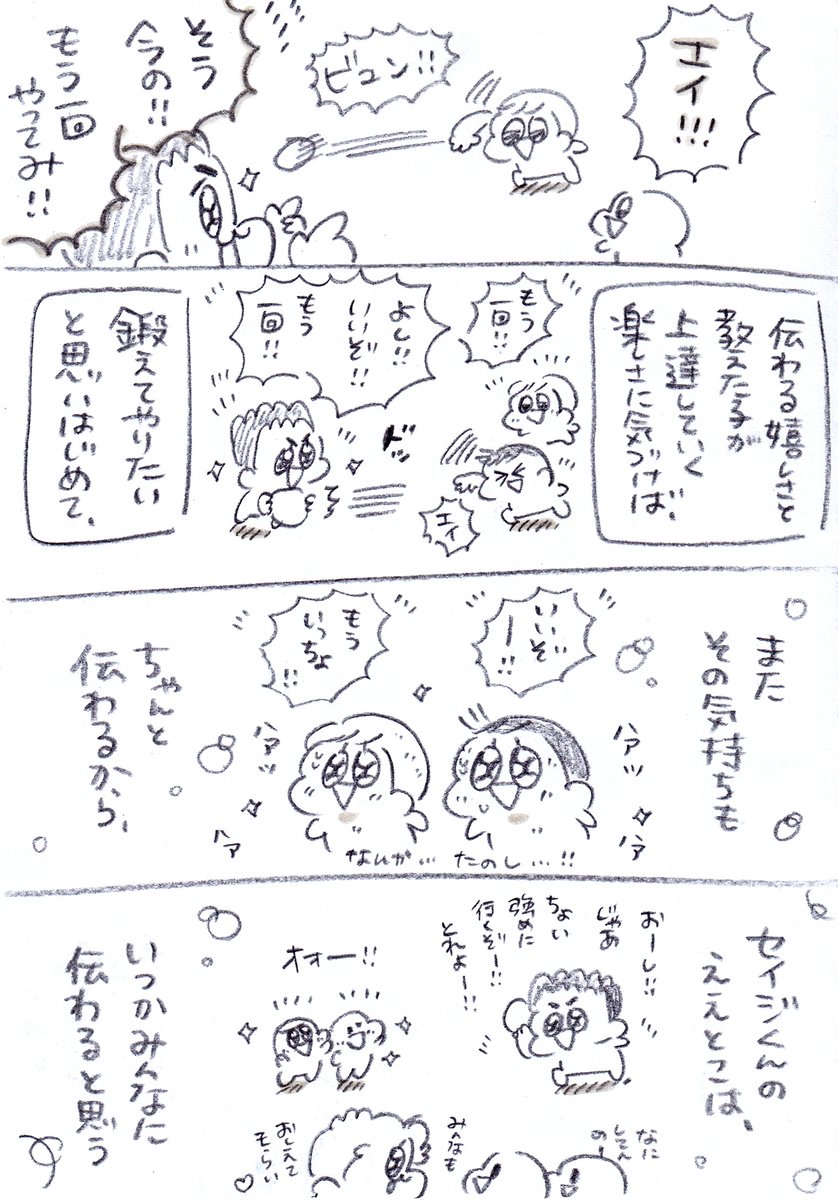 エイ!!!
ビュン!!
そう
今の!!
もう一回
やってみ!!
伝わる嬉しさと
教えた子が
上達していく
楽しさに気づけば、
もう
一回!!
エイ
よし!!
いいぞ!!
もう
一回!!
ドッ
鍛えてやりたい
と思いはじめて、
また
その気持ちも
いいぞ
ー!!
もう
いっちょ
!!
ハアッ
ハア
ハアッ
ハア
なんか… たのし…!!
ちゃんと
伝わるから、
セイジくんの
ええとこは、
おーし!!
じゃあ
ちょい
強めに
行くぞー!!
とれよー!!
オォー!!
なに
してん
のー
みんなも
おしえて
もらい
♡
いつかみんなに
伝わると思う